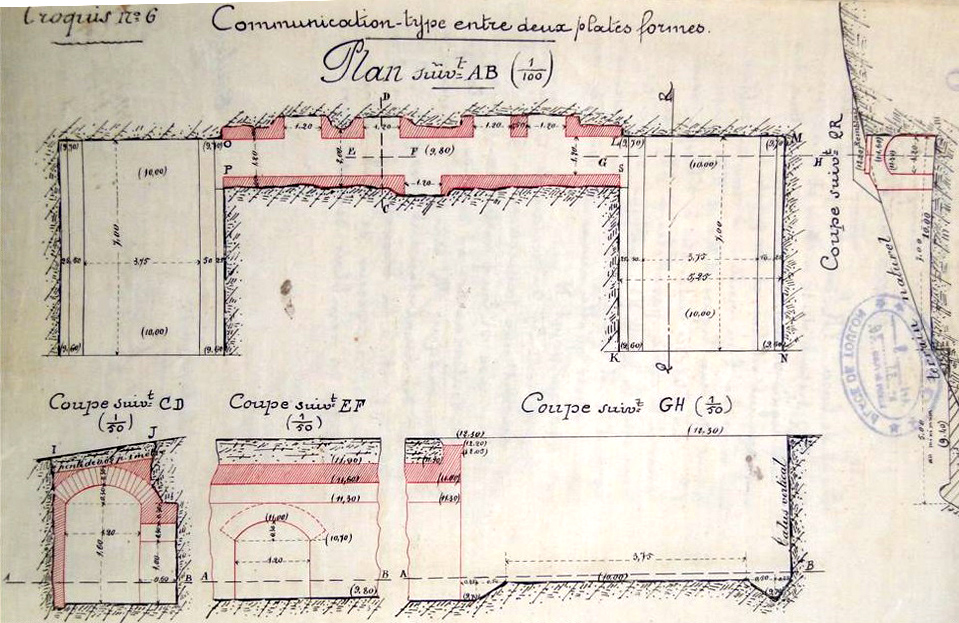 Croquis nº 6
Communication-type entre deux plates formes.
Plan suivt AB (1/100)
D
R
(9,70) (9,70) O 1.20 1.20 1.20 1.20 L (9,70) (9,70) M
(10,00) 1.20 2,00 E F (9,80) 1.20 G (10,00) H
P 1.20 S
C
7,00 7,00
3,75 50 3,75
5,25
(10,00) (10,00)
(9,60) (9,60) (9,60) (9,60)
K Q N
Coupe suivt QR
terrain naturel
10,00
7.00
5,50
au minimum
(9,40)
PLACE DE TOULON
Coupe suivt CD
(1/50)
I J
1.20
1,60
1,00
0,50
A B
Coupe suivt EF
(1/50)
(11,90)
(11,60)
(11,30)
(11,00)
(10,70)
1.20
A B
(9,80)
Coupe suivt GH (1/50)
(12.50) (12,50)
(12.20)
(12.05)
(11.60)
(11.30)
Talus vertical
3,75
A (10,00) B